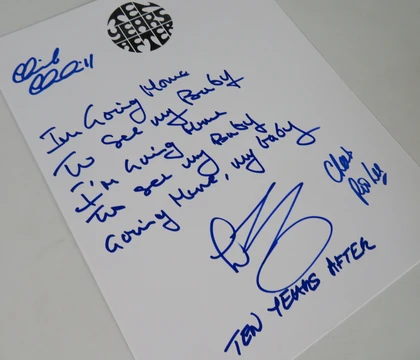 TEN
YEARS
AFTER
Chick
Churchill
I'm Going Home
To see my Baby
I'm Going Home
To see my Baby
Going Home, my baby
TEN YEARS AFTER